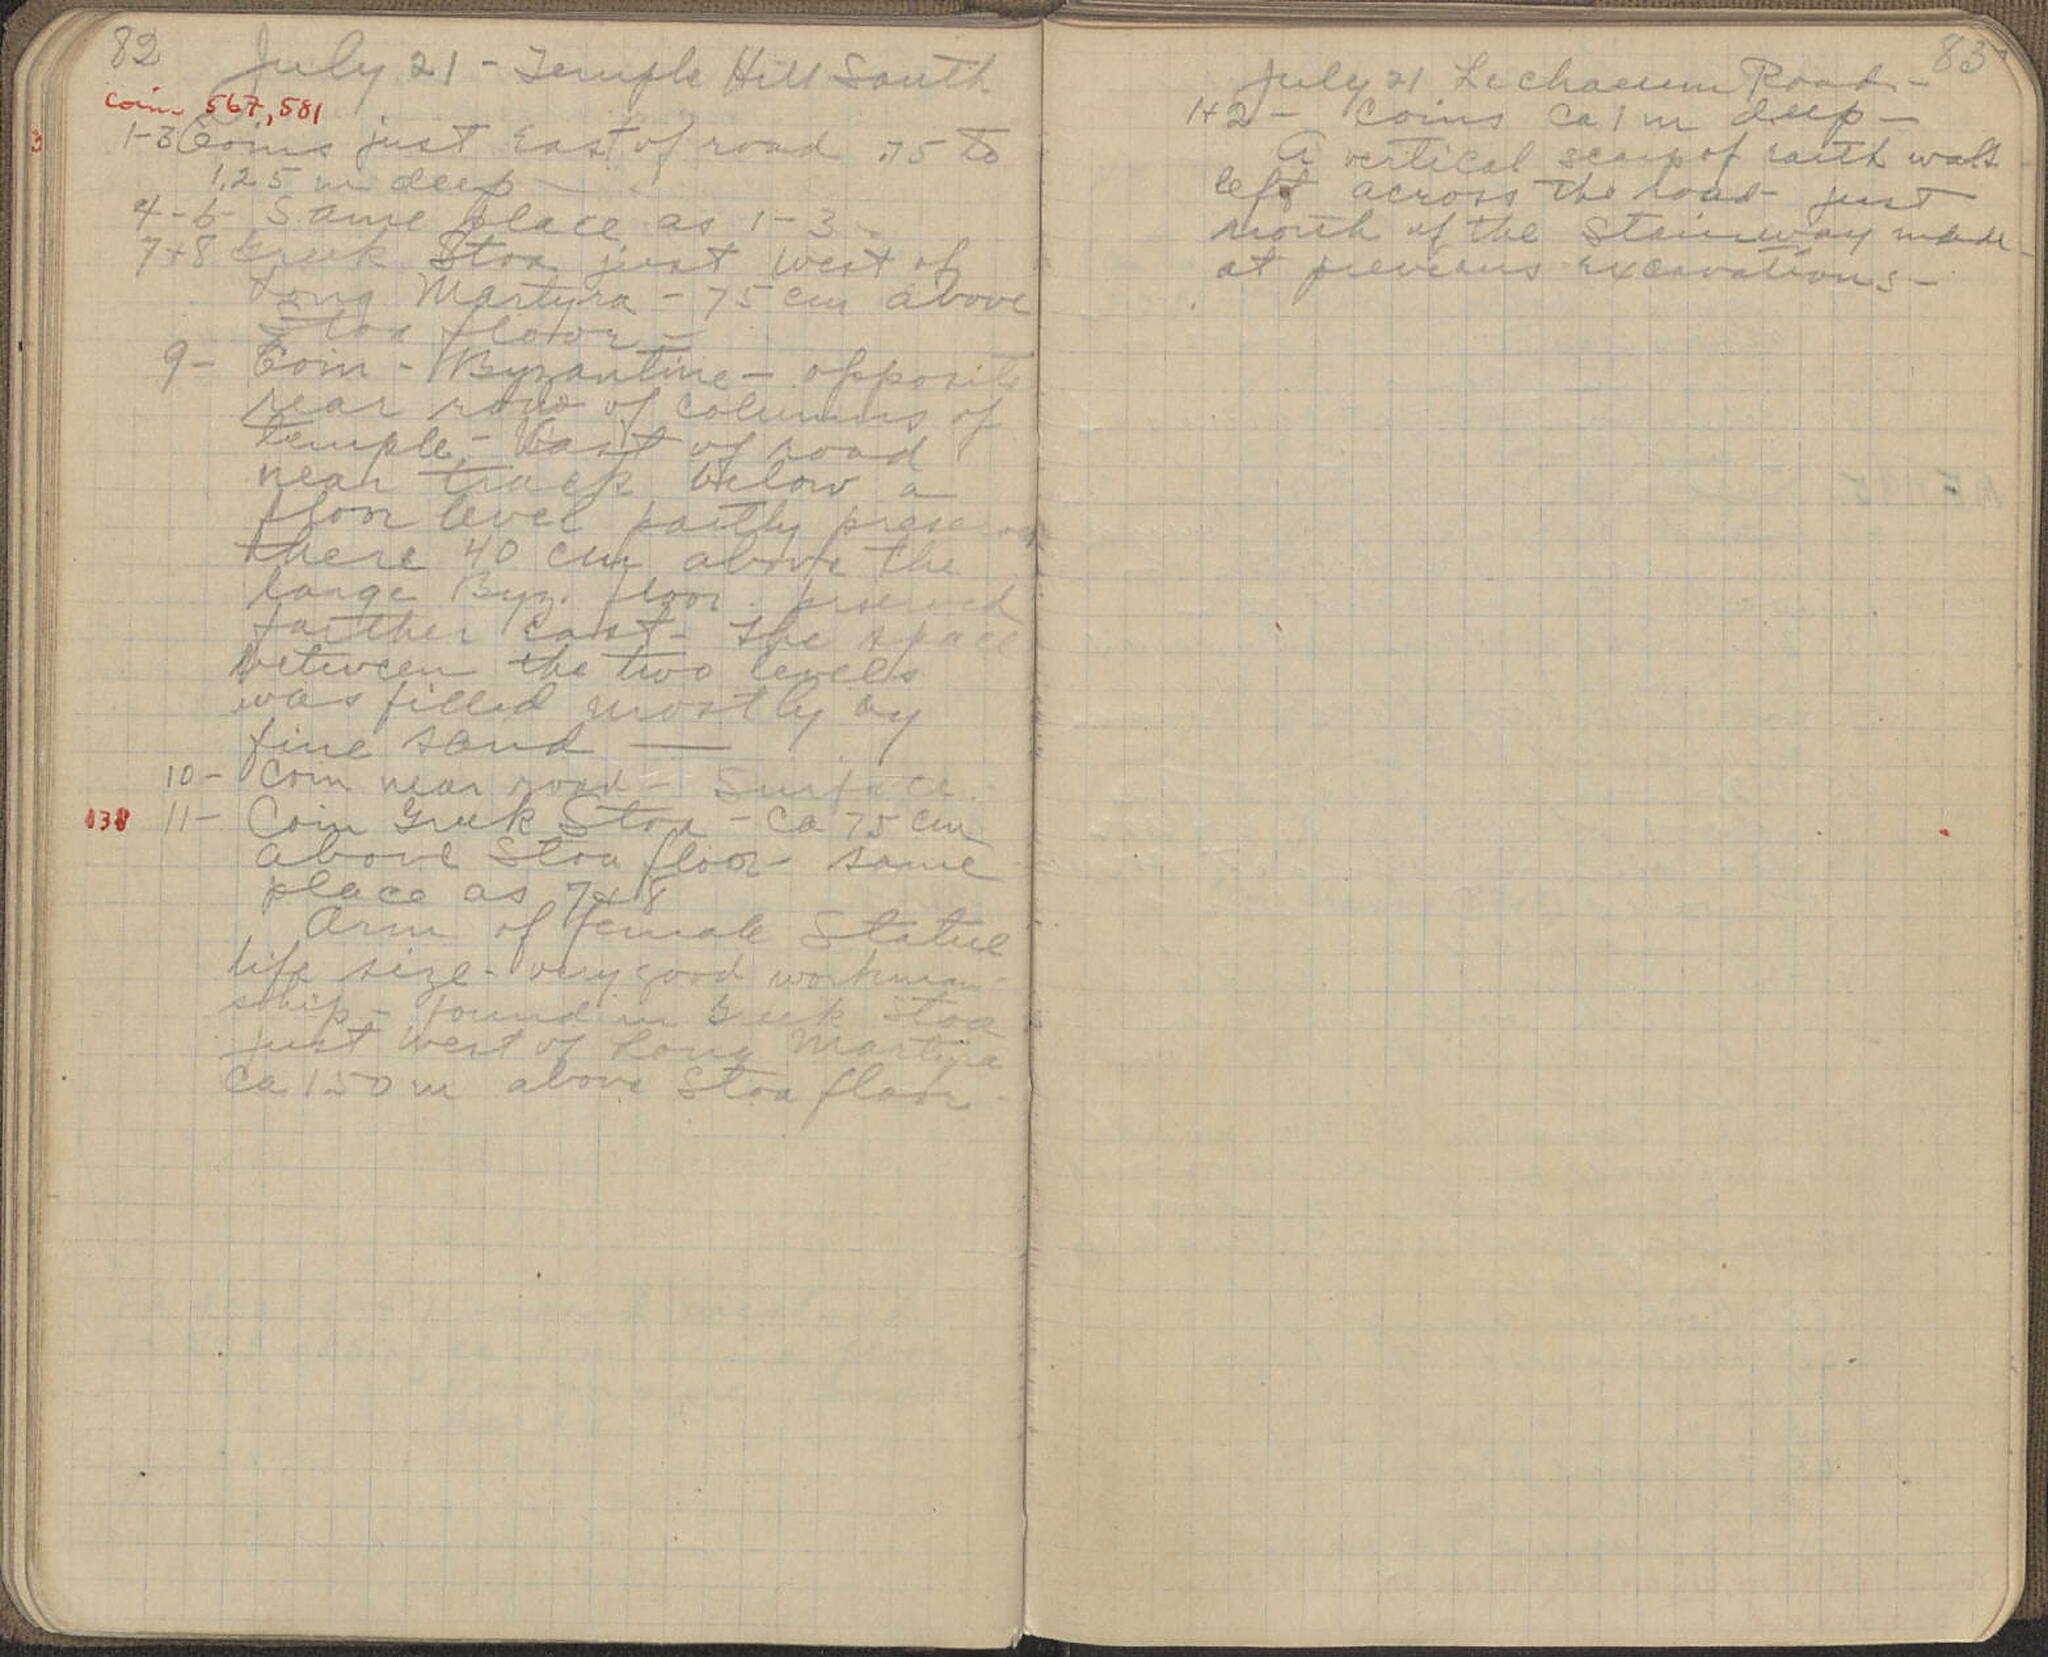 82
July 21 - Temple Hill South
coins 567, 581
3
1-3 Coins just East of road .75 to
1.25 m deep -
4-6- Same place as 1-3 -
7+8 Greek Stoa just west of
Long Martyra - 75 cm above
Stoa floor -
9- Coin - Byzantine - opposite
rear row of columns of
temple - East of road
near track below a
floor level partly preserved
there 40 cm above the
large Byz. floor preserved
farther east - The space
between the two levels
was filled mostly by
fine sand —
10- Coin near road - Surface.
138 11- Coin Greek Stoa - ca 75 cm
above Stoa floor - same
place as 7+8
Arm of female Statue
life size - very good workman-
ship - found in Greek Stoa
just west of Long Martyra
ca 1.50 m above Stoa floor -
83
July 21 Lechaeum Road -
1+2 - Coins ca 1 m deep -
A vertical scarp of earth was
left across the road just
north of the Stairway made
at previous excavations -